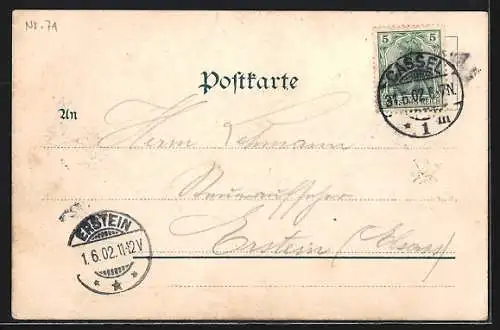 Nr. 7A
5
CASSEL
31.5.02.6-7N.
* 1 m
Postkarte
An
Herrn Lehmann
Steueraufseher
Erstein (Elsass)
ERSTEIN
1.6.02.11-12V
* * *